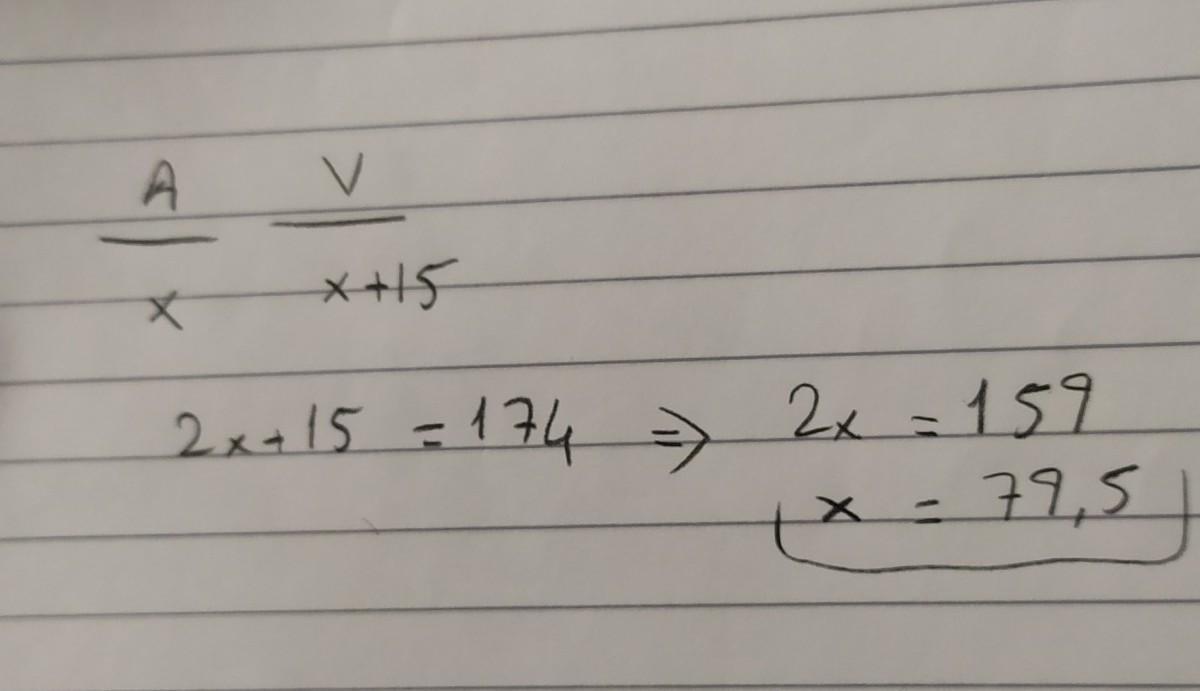 A V
x x+15
2x+15 = 174 ⇒ 2x = 159
x = 79,5